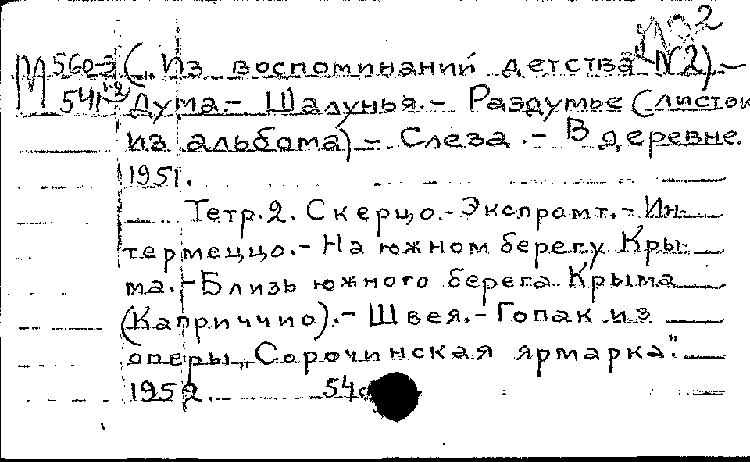 №2
М 560-3 („Из воспоминаний детства" №2).-
541-2 Дума.- Шалунья.- Раздумье (листок
из альбома).- Слеза.- В деревне.
1951.
Тетр.2. Скерцо.- Экспромт.- Ин-
термеццо.- На южном берегу Кры-
ма.- Близь южного берега Крыма
(Каприччио).- Швея.- Гопак из
оперы „Сорочинская ярмарка".
1952.